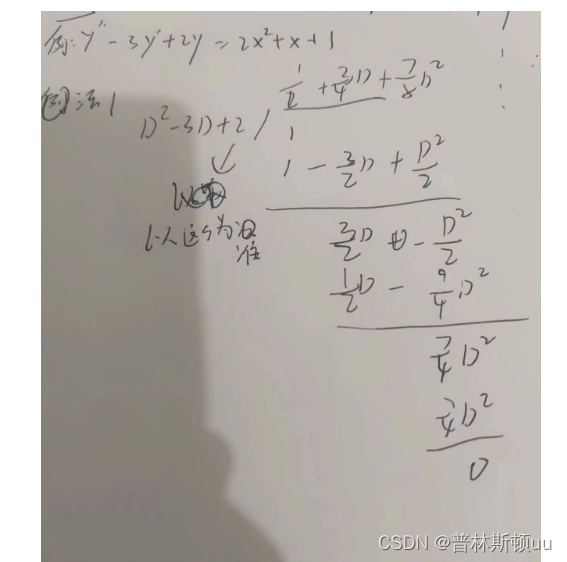 例: y'' - 3y' + 2y = 2x² + x + 1
法1
1/2 + 3/4 D + 7/8 D²
D² - 3D + 2 / 1
1 - 3/2 D + D²/2
以这个为准
3/2 D - D²/2
1/2 D - 9/4 D²
7/4 D²
7/4 D²
0
CSDN @普林斯顿uu